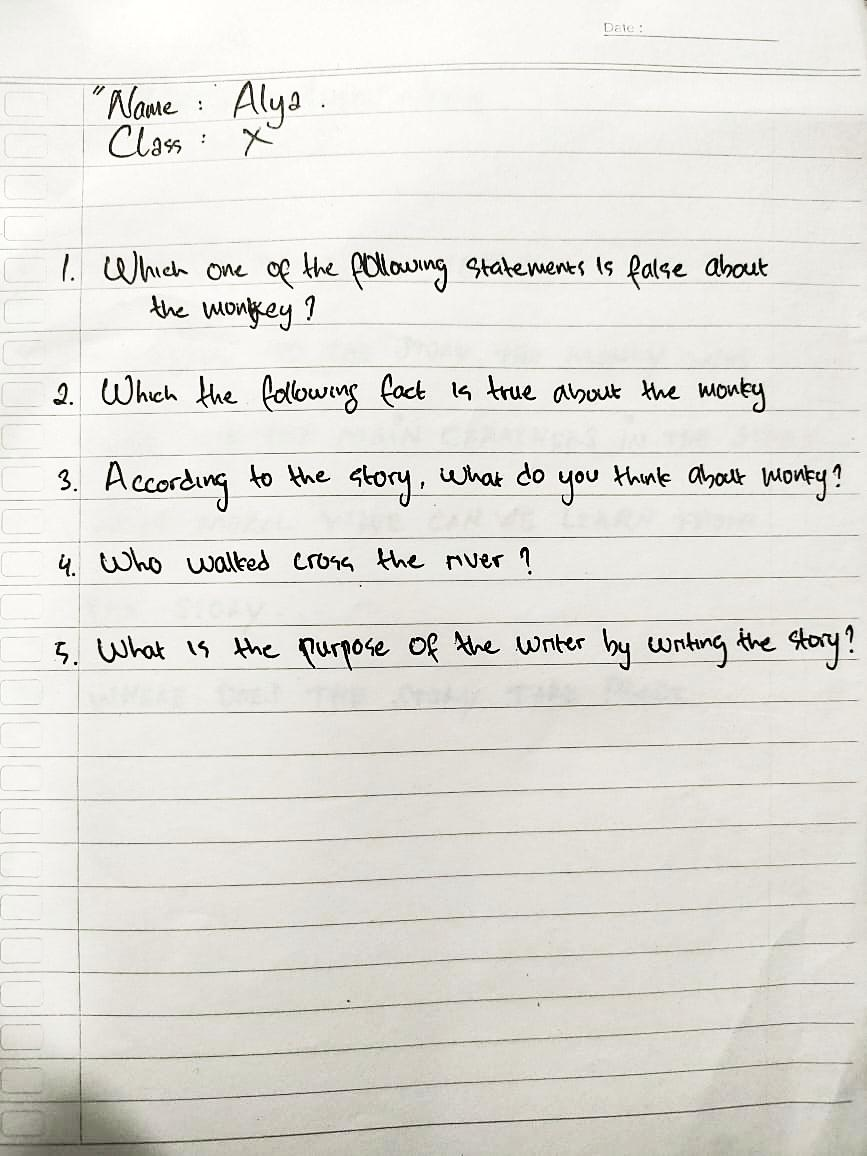 Date :
"Name : Alya .
Class : X
1. Which one of the following statements is false about
the monkey ?
2. Which the following fact is true about the monky
3. According to the story, what do you think about monky?
4. Who walked cross the river ?
5. What is the purpose of the writer by writing the story?